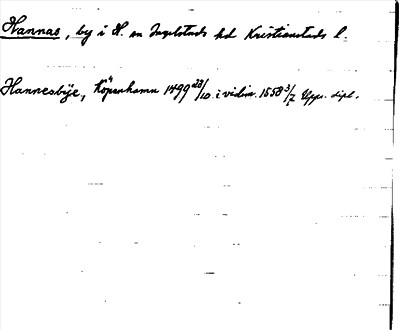 Hannas, by i H. sn Ingelstads hd Kristianstads l.
Hannesbÿe, Köpenhamn 1499 23/10 i vidim. 1558 3/7 Upps. dipl.